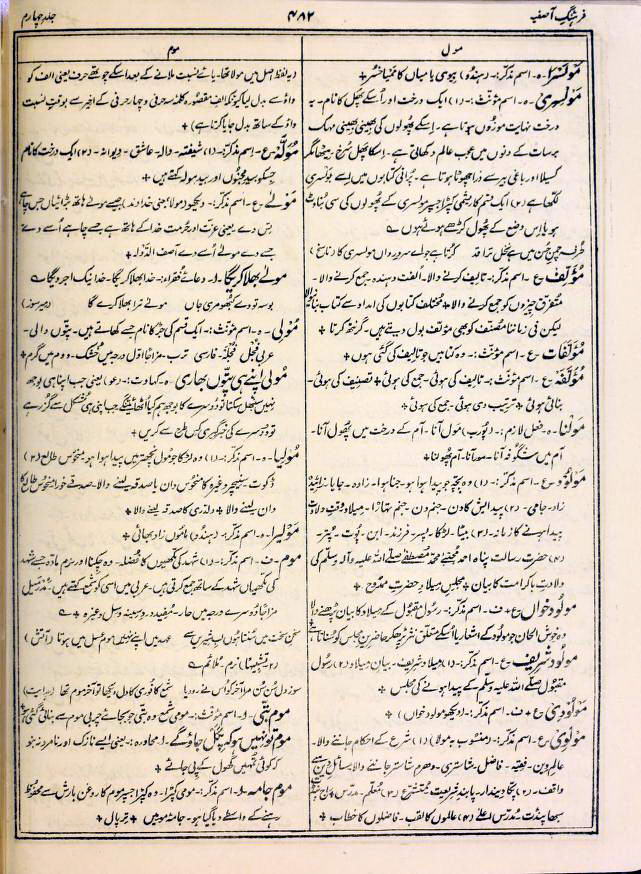 فرہنگِ آصفیہ
۴۸۲
جلد چہارم
مول
مَولسرا - ہ - اسم مذکر :- (ہندو) بیوی یا میاں کا ممیا خسُر +
مَولسِری - ہ - اسم مؤنّث :- (۱) ایک درخت اور اُسکے پھل کا نام - یہ
درخت نہایت موزوں ہوتا ہے - اِسکے پھولوں کی بھینی بھینی مہک
برسات کے دنوں میں عجب عالم دکھاتی ہے - اِسکا پھل سُرخ - میٹھا مگر
کسیلا اور باغی بیر سے ذرا چھوٹا ہوتا ہے - پُرانی کتابوں میں اِسے بولسری
لکھا ہے (۲) ایک قسم کا ریشمی کپڑا جسپر مولسری کے پھولوں کی سی بُناوٹ
ہو یا اِس وضع کے پھول کڑھے ہوئے ہوں ؎
مُؤلّف - ع - اسم مذکر :- تالیف کرنے والا - اُلفت دہندہ - جمع کرنے والا -
متفرق چیزوں کو جمع کرنے والا + مختلف کتابوں کی امداد سے کتاب بنانے والا
لیکن فی زماننا مُصنّف کو بھی مؤلف بول دیتے ہیں - گرنتھ کرتا +
مُؤلّفات - ع - اسم مؤنّث :- وہ کتابیں جو تالیف کی گئی ہوں +
مُؤلّفہ - ع - اسم مؤنّث :- تالیف کی ہوئی - جمع کی ہوئی + تصنیف کی ہوئی -
بنائی ہوئی + ترتیب دی ہوئی - جمع کی ہوئی +
مَولنا - ہ - فعل لازم :- (پورب) مَول آنا - آم کے درخت میں پھول آنا -
آم میں شگوفہ آنا - مور آنا - آم پھولنا +
مَولُود - ع - اسم مذکر :- (۱) وہ بچہ جو پیدا ہوا ہو - جنا ہوا - زادہ - جایا - زائیدہ
زاد - جامی - (۲) پیدایش کا دن - جنم دن - جنم نہار - میلاد وقتِ ولادت
پیدا ہونے کا زمانہ - (۳) بیٹا - لڑکا - پسر - فرزند - ابن - پوت - پتر -
(۴) حضرت رسالت پناہ احمد مجتبےٰ محمد مصطفےٰ صلے اللہ علیہ وآلہ وسلم کی
ولادتِ باکرامت کا بیان + مجلسِ میلادِ حضرتِ ممدوح +
مَولود خواں - ع + ف - اسم مذکر :- رسول مقبول کے میلاد کا بیان پڑھنے والا
وہ خوش الحان جو مولود کے اشعار یا اُسکے متعلق نثر پڑھکر حاضرینِ مجلس کو سُنائے +
مَولود شریف - ع - اسم مذکر :- (۱) میلاد شریف - بیان میلاد (۲) رسول
مقبول صلے اللہ علیہ وسلم کے پیدا ہونے کی مجلس +
مَولودی - ع + ف - اسم مذکر :- (دیکھو مولود خواں) +
مَولوی - ع - اسم مذکر :- (منسوب بہ مولا) (۱) شرع کے احکام جاننے والا -
عالمِ دین - فقیہ - فاضل - شاستری - دھرم شاستر جاننے والا - مسائلِ دین سے
واقف - (۲) پکا دیندار - پابندِ شریعت - متشرع (۳) معلّم - مدرّس
سبھا پنڈت - مدرّس اعلےٰ (۴) عالموں کا لقب - فاضلوں کا خطاب +
موم
(یہ لفظ اصل میں مولا تھا - یائے نسبت ملانے کے بعد اسکے چوتھے حرف یعنی الف کو
واؤ سے بدل لیا کیونکہ الف مقصورہ کلمہ سہ حرفی و چار حرفی کے اخیر سے بوقتِ نسبت
واؤ کے ساتھ بدل جایا کرتا ہے) +
مُولّہ - ع - اسم مذکر :- (۱) شیفتہ - والہ - عاشق - دیوانہ - (۲) ایک درخت کا نام
جسکو بید مجنوں اور بید مولہ کہتے ہیں +
مَولے - ع - اسم مذکر :- دیکھو (مولا یعنی خداوند) جیسے مولے ہاتھ بڑائیاں جس چاہے
تِس دے - یعنی عزت اور حُرمت خدا کے ہاتھ ہے جسے چاہے اُسے دے
جسے دے مولے اُسے دے آصف الدّولہ +
مولے بھلا کریگا - اُ - دعائے فقرا :- خدا بھلا کریگا - خدا نیک اجر دیگا ؎
بوسہ تو دے کبھو مری جاں مولے ترا بھلا کرے گا (میر سوز)
مُولی - ہ - اسم مؤنّث :- ایک قسم کی جڑ کا نام جسے کھاتے ہیں - پتّوں والی -
عربی فجل - فُجلہ - فارسی تُرب - مزاجاً اوّل درجہ میں خشک - دوم میں گرم +
مُولی اپنے ہی پتّوں بھاری - ہ - کہاوت :- (عو) یعنی جب اپنا ہی بوجھ
نہیں سنبھل سکتا تو دُوسرے کا بوجھ ہم کیا اُٹھائینگے جب اپنی ہی مشکل سے گزر ہے
تو دُوسرے کی خبرگیری کس طرح سے کریں +
مُولیا - ہ - اسم مذکر :- (۱) وہ لڑکا جو مُول نچھتر میں پیدا ہوا ہو - منحوس طالع (۲)
ڈکوت - سنیچر وغیرہ کا منحوس دان یا صدقہ لینے والا - صدقہ خور - منحوس طالع کا
دان لینے والا + ولدزی کا صدقہ لینے والا +
مَولیرا - ہ - اسم مذکر :- (ہندو) ماموں زاد بھائی +
موم - ف - اسم مذکر :- (۱) شہد کی مکھیوں کا فُضلہ - وہ چکنا اور نرم مادّہ جسے شہد
کی مکھیاں شہد کے ساتھ جمع کرتی ہیں - عربی میں اسی کو شمع کہتے ہیں - مُدّرسل
مزاجاً دُوسرے درجہ میں حار - مُفید درد سینہ و سِل وغیرہ + ؎
(۲) تشبیہًا) نرم - مُلائم ؎
سوزِ دل سُن سُن مرا آخر کو اُس نے رو دیا شمع کافُوری کا دل دیکھا تو آخر موم تھا (ہدایت)
موم بتّی - اُ - اسم مؤنّث :- مومی شمع وہ بتّی جو بجائے چربی موم سے بنائی گئی ہو +
موم تو نہیں ہو کہ پگھل جاؤ گے - اُ - محاورہ :- یعنی ایسے نازک اور نامرد نہ بنو
کہ کوئی تمہیں گھول کے پی جائے +
موم جامہ - اُ - اسم مذکر :- مومی کپڑا - وہ کپڑا جسپر موم کا روغن بارش سے محفوظ
رہنے کے واسطے دیا گیا ہو - جامۂ مومیں + ترپال +